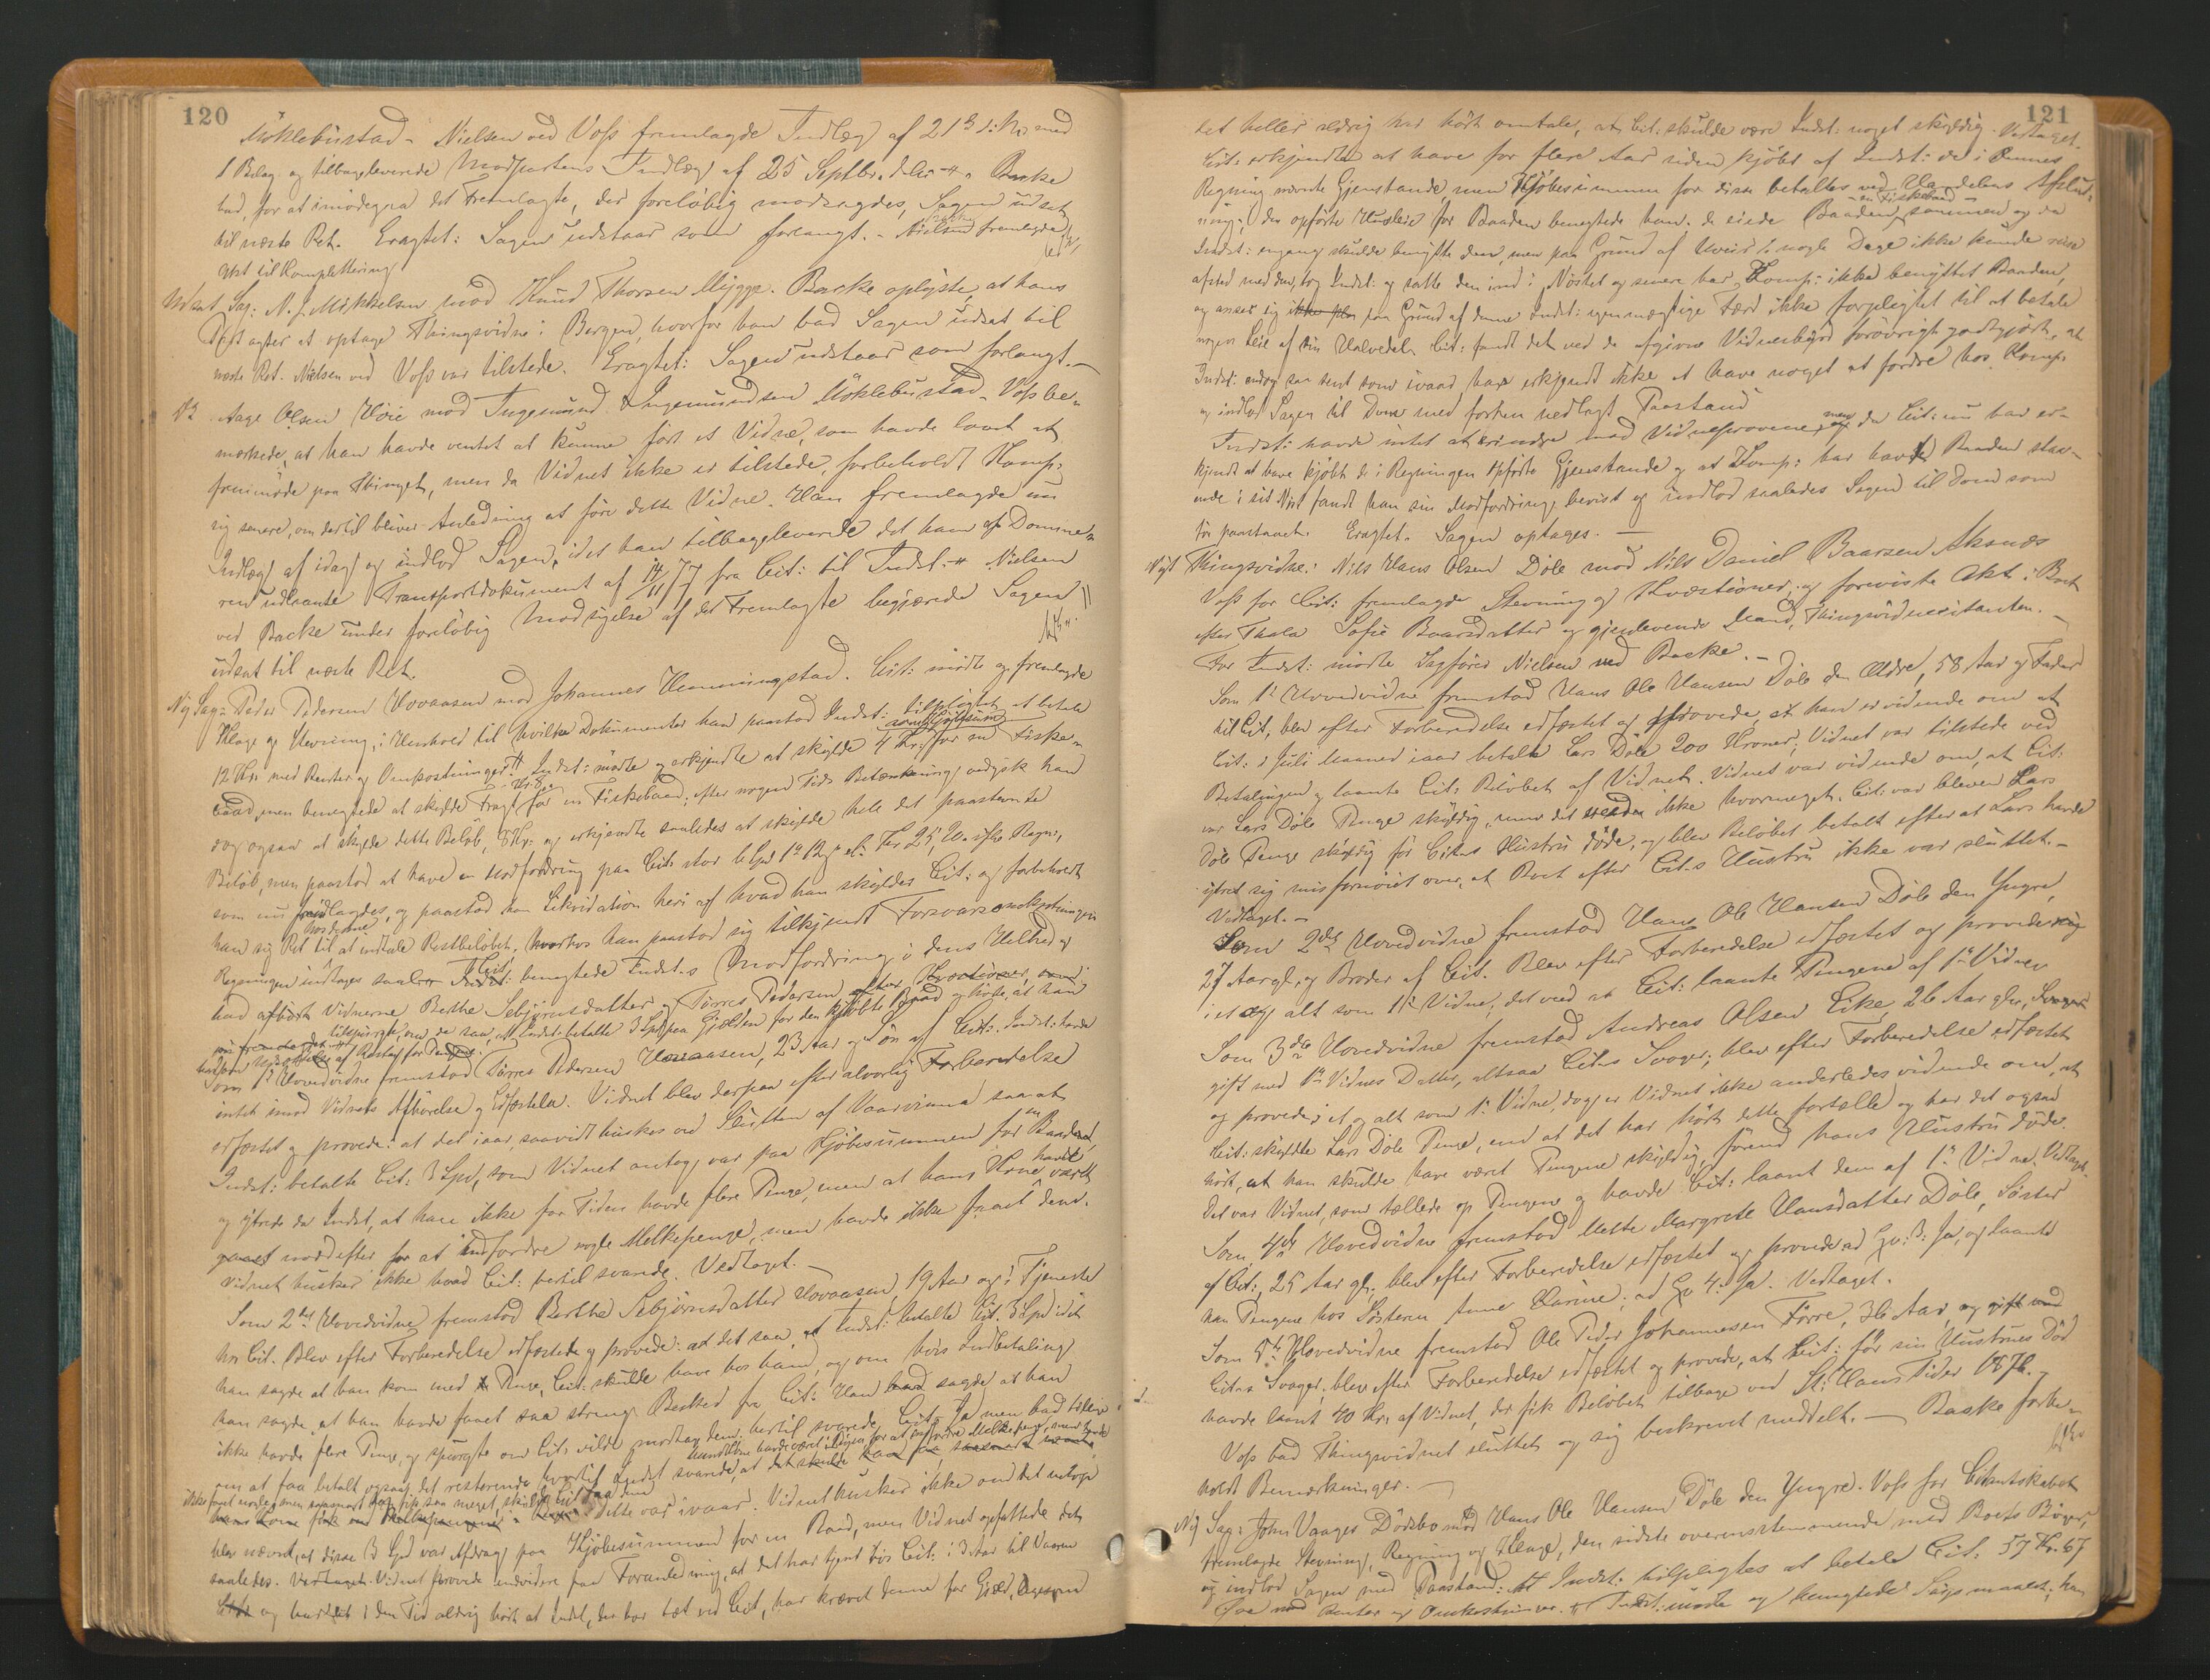 120
Möklebustad - Nielsen ved Voss fremlagde Indlæg af 21de d: M: med
1 Bilag og tilbageleverede Modpartens Indlæg af 25 Septbr. d: Aar - Backe
bad, for at imødegaa det Fremlagte, der foreløbig modsagdes, Sagen udsat
til næste Ret. Eragtet: Sagen udstaar som forlangt. - Nielsen fremlagde
Akt til Komplettering
Udsat Sag: N. J. Mikkelsen mod Knud Thorsen Mygge. Backe oplyste, at hans
Part agter at optage Thingsvidne i Bergen, hvorfor han bad Sagen udsat til
næste Ret. Nielsen ved Voss var tilstede. Eragtet: Sagen udstaar som forlangt. -
Aage Olsen Höie mod Ingemund Ingemundsen Möklebustad - Voss be-
mærkede, at han havde ventet at kunne ført et Vidne, som havde lovet at
fremmøde paa Thinget, men da Vidnet ikke er tilstede, forbeholdt Komp:
sig senere, om dertil bliver Anledning at føre dette Vidne. Han fremlagde nu
Indlæg af idag og indlod Sagen, idet han tilbageleverede det ham af Domme-
ren udlaante Transportdokument af 14/11 77 fra Cit: til Indst: Nielsen
ved Backe under foreløbig Modsigelse af det Fremlagte begjærede Sagen
udsat til næste Ret.
Ny Sag: Peder Pedersen Hovaasen mod Johannes Hemmingstad. Cit: mødte og fremlagde
Klage og Stevning, i Henhold til hvilke Dokumenter han paastod Indst: tilpligtet at betale
12 Kr. med Renter og Omkostninger. Indst: mødte og erkjendte at skylde 4 Kr. for en Fiske-
baad, men benegtede at skylde Fragt for en Fiskebaad; efter nogen Tids Betænkning vedgik han
dog ogsaa at skylde dette Beløb, 8 Kr. og erkjendte saaledes at skylde hele det paastevnte
Beløb, men paastod at have en Modfordring paa Cit: stor
som nu fremlagdes, og paastod han Likvidation heri af hvad han skyldes Cit: og forbeholdt
han sig Ret til at indtale Restbeløbet, hvorhos han paastod sig tilkjendt Forsvarsomkostninger.
Regningen indtages saal. Cit: benegtede Indst.s Modfordring i dens Helhed og
bad afhørt Vidnerne Berthe Sebjørnsdatter og Tørres Pedersen
tilspørges, om de saa, at Indst: betalte 3 Spd. paa Gjælden for den kjøbte Baad og hørte, at han
Som 1ste Hovedvidne fremstod Tørres Pedersen Hovaasen, 23 Aar og Søn af Cit. Indst: havde
intet imod Vidnets Afhørelse og Edfæstelse. Vidnet blev derpaa efter alvorlig Forberedelse
edfæstet og provede: at det iaar, saavidt huskes ved Slutten af Vaarvinna saa at
Indst: betalte Cit: 3 Spd., som Vidnet antog var paa Kjøbesummen for en Baad,
og ytrede da Indst, at han ikke for Tiden havde flere Penge, men at hans Kone havde været
nordefter for at indfordre nogle Melkepenge, men havde ikke faaet dem.
Vidnet husker ikke hvad Cit: hertil svarede. Vedtaget. -
Som 2det Hovedvidne fremstod Berthe Sebjørnsdatter Hovaasen, 19 Aar og i Tjeneste
hos Cit. Blev efter Forberedelse edfæstet og provede: at det saa, at Indst: betalte Cit. 3 Spd. idet
han sagde at han kom med Penge, Cit: skulde have hos ham, og om hvis Indbetaling
han sagde, at han havde faaet saa streng Besked fra Cit: Han sagde at han
ikke havde flere Penge, og spurgte om Cit: vilde modtage dem, hertil svarede Cit: Ja men bad tillige
om at faa betalt ogsaa det resterende, hvortil Indst svarede, at hans Kone havde været i Byen for at indfordre Melkepenge, men havde
ikke faaet nogle, men saasnart han fik saa meget, skulde Cit faa dem
dette var ivaar. Vidnet husker ikke om det netop
blev nævnt, at disse 3 Spd. var Afdrag paa Kjøbesummen for en Baad, men Vidnet opfattede det
saaledes. Vedtaget. Vidnet provede endvidere paa Foranledning, at det har tjent hos Cit: i 3 Aar til Vaaren
og har det i den Tid aldrig hørt at Indst, der bor tæt ved Cit, har krævet denne for Gjæld, ligesom
121
det heller aldrig har hørt omtale, at Cit: skulde være Indst: noget skyldig. Vedtaget.
Cit: erkjendte at have for flere Aar siden kjøbt af Indst: de i dennes
Regning nævnte Gjenstande, men Kjøbesummen for disse betaltes ved Handelens Afslut-
ning; den opførte Husleie for Baaden benegtede han. De eiede Baaden en Fiskebaad sammen og da
Indst: engang skulde benytte den, men paa Grund af Uveir i nogle Dage ikke kunde reise
afsted med den, tog Indst: og satte den ind i Nøstet og senere har Komp: ikke benyttet Baaden,
og anser sig paa Grund af denne Indst: egenmægtige Færd ikke forpligtet til at betale
nogen Leie af sin Halvedel. Cit: fandt det ved de afgivne Vidnesbyrd forøvrigt godtgjort, at
Indst: endog saa sent som ivaar har erkjendt ikke at have noget at fordre hos Komp:
og indlod Sagen til Dom med forhen nedlagt Paastand
Indst: havde intet at erindre mod Vidneprovene, men da Cit: nu har er-
kjendt at have kjøbt de i Regningen opførte Gjenstande og at Komp: har havt Baaden staa-
ende i sit Nøst fandt han sin Modfordring bevist og indlod saaledes Sagen til Dom som
før paastaaet. Eragtet. Sagen optages. -
Nyt Thingsvidne: Nils Hans Olsen Döle mod Nils Daniel Baarsen Aksnæs
Voss for Cit: fremlagde Stevning og Kvæstioner, og foreviste Akt i Boet
efter Thala Sofie Baarsdatter og gjenlevende Mand, Thingsvidnecitanten. -
For Indst: mødte Sagfører Nielsen ved Backe. -
Som 1ste Hovedvidne fremstod Hans Ole Hansen Döle den Ældre, 58 Aar og Fader
til Cit, blev efter Forberedelse edfæstet og provede, at han er vidende om at
Cit: i Juli Maaned iaar betalte Lars Döle 200 Kroner; Vidnet var tilstede ved
Betalingen og laante Cit: Beløbet af Vidnet. Vidnet var vidende om, at Cit:
var Lars Döle Penge skyldig, men det ikke hvormeget. Cit: var bleven Lars
Döle Penge skyldig før Citas Hustru døde, og blev Beløbet betalt efter at Lars havde
ytret sig misfornøiet over, at Boet efter Cit.s Hustru ikke var sluttet. -
Vedtaget. -
Som 2det Hovedvidne fremstod Hans Ole Hansen Döle den Yngre,
27 Aar gl. og Broder af Cit. Blev efter Forberedelse edfæstet og provede
i et og alt som 1ste Vidne; det ved at Cit: laante Pengene af 1ste Vidne
Som 3die Hovedvidne fremstod Andreas Olsen Eike, 26 Aar gl,
gift med 1ste Vidnes Datter, altsaa Citas Svoger; blev efter Forberedelse edfæstet
og provede i et og alt som 1ste Vidne, dog er Vidnet ikke anderledes vidende om, at
Cit: skyldte Lars Döle Penge, end at det har hørt dette fortælle og har det ogsaa
hørt, at han skulde have været Pengene skyldig, førend hans Hustru døde.
Det var Vidnet, som tællede op Pengene og havde Cit: laant dem af 1ste Vidne. Vedtaget.
Som 4de Hovedvidne fremstod Mette Margrete Hansdatter Döle, Søster
af Cit:, 25 Aar gl. blev efter Forberedelse edfæstet og provede ad Qv: 3: Ja, og laante
han Pengene hos Søsteren Anne Karine; ad Qv 4: Ja. Vedtaget.
Som 5te Hovedvidne fremstod Ole Peder Johannesen Førre, 36 Aar, og gift med
Citas Svoger; blev efter Forberedelse edfæstet og provede, at Cit: før sin Hustrues Død
havde laant 40 Kr. af Vidnet, der fik Beløbet tilbage ved St: Hans Tider 1878. -
Voss bad Thingsvidnet sluttet og sig beskrevet meddelt. - Backe forbe-
holdt Bemærkninger. -
Ny Sag: John Vaages Dødsbo mod Hans Ole Hansen Döle den Yngre. Voss for Citantskabet
fremlagde Stevning, Regning og Klage, den sidste overensstemmende med Boets Bøger,
og indlod Sagen med Paastand: At Indst: tilpligtes at betale Cit: 57 Kr. 67
Øre med Renter og Omkostninger. Indst: mødte og benegtede Søgsmaalet; han